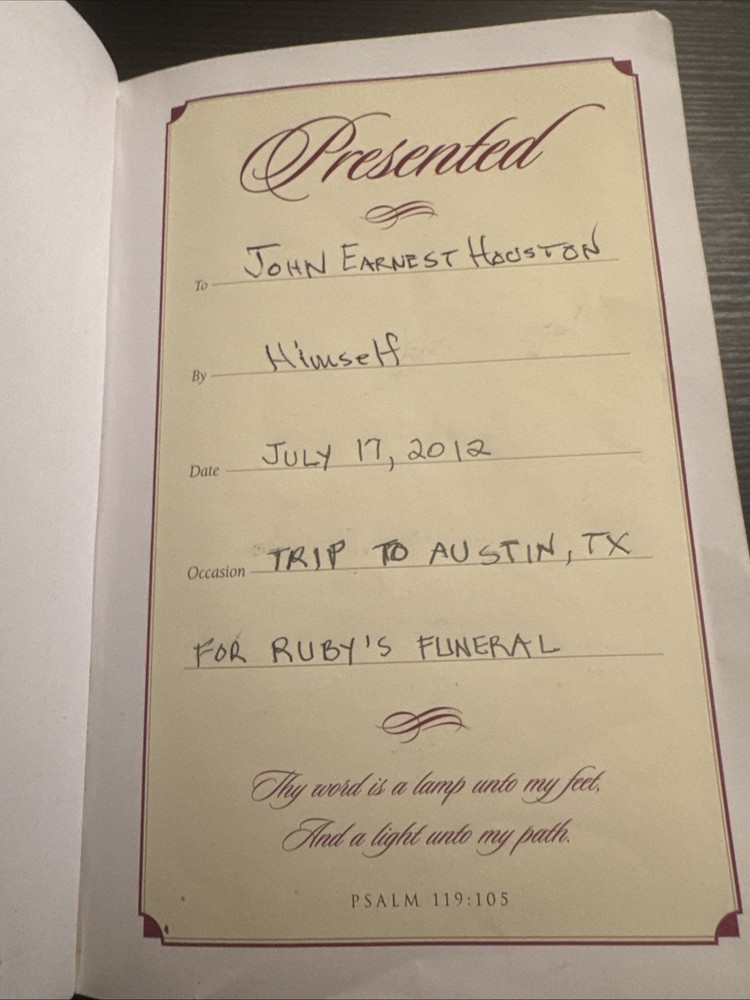 Presented
To John Earnest Houston
By Himself
Date July 17, 2012
Occasion TRIP TO AUSTIN, TX
FOR RUBY'S FUNERAL
Thy word is a lamp unto my feet,
And a light unto my path.
PSALM 119:105